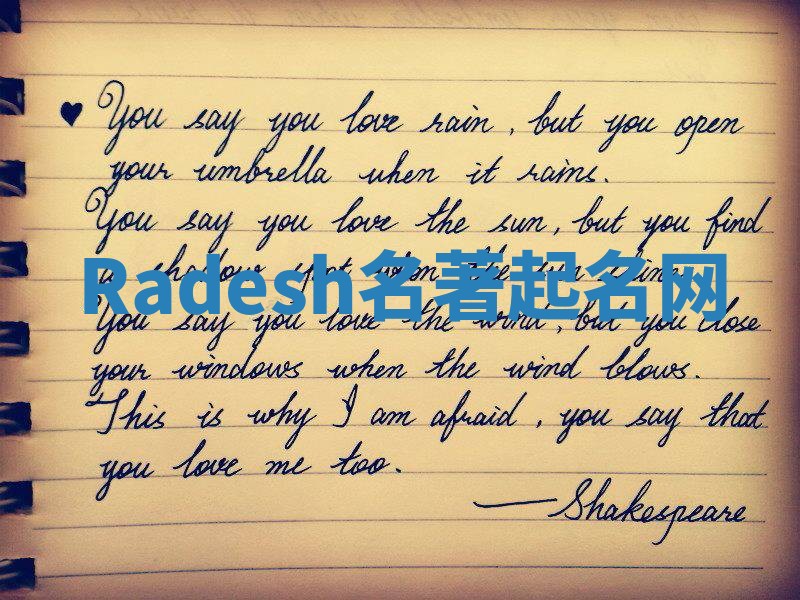 ♥ You say you love rain, but you open
your umbrella when it rains.
You say you love the sun, but you find
a shadow spot when the sun shines.
Radesh名著起名网
You say you love the wind, but you close
your windows when the wind blows.
This is why I am afraid, you say that
you love me too.
—Shakespeare